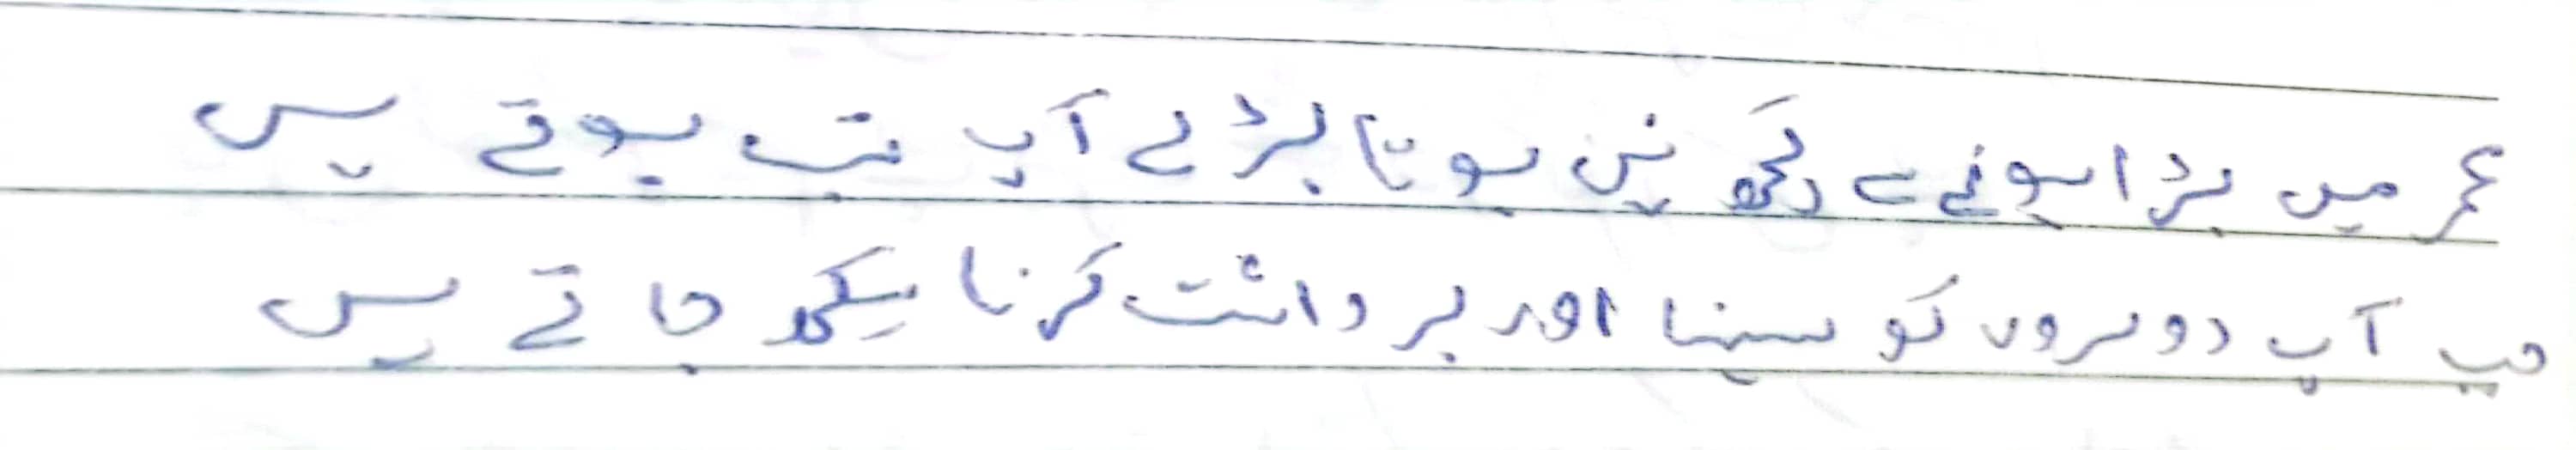 عمر میں بڑا ہونے سے کچھ نہیں ہوتا بڑے آپ تب ہوتے ہیں
جب آپ دوسروں کو سہنا اور برداشت کرنا سیکھ جاتے ہیں